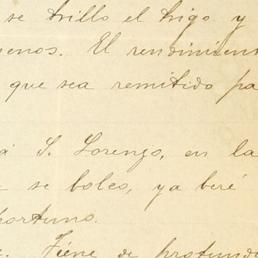 se trillo el trigo y
enos. El rendimient
que sea remitido pa
á S. Lorenzo, en la
se boleo, ya beré
portuno.
Tiene de profundi